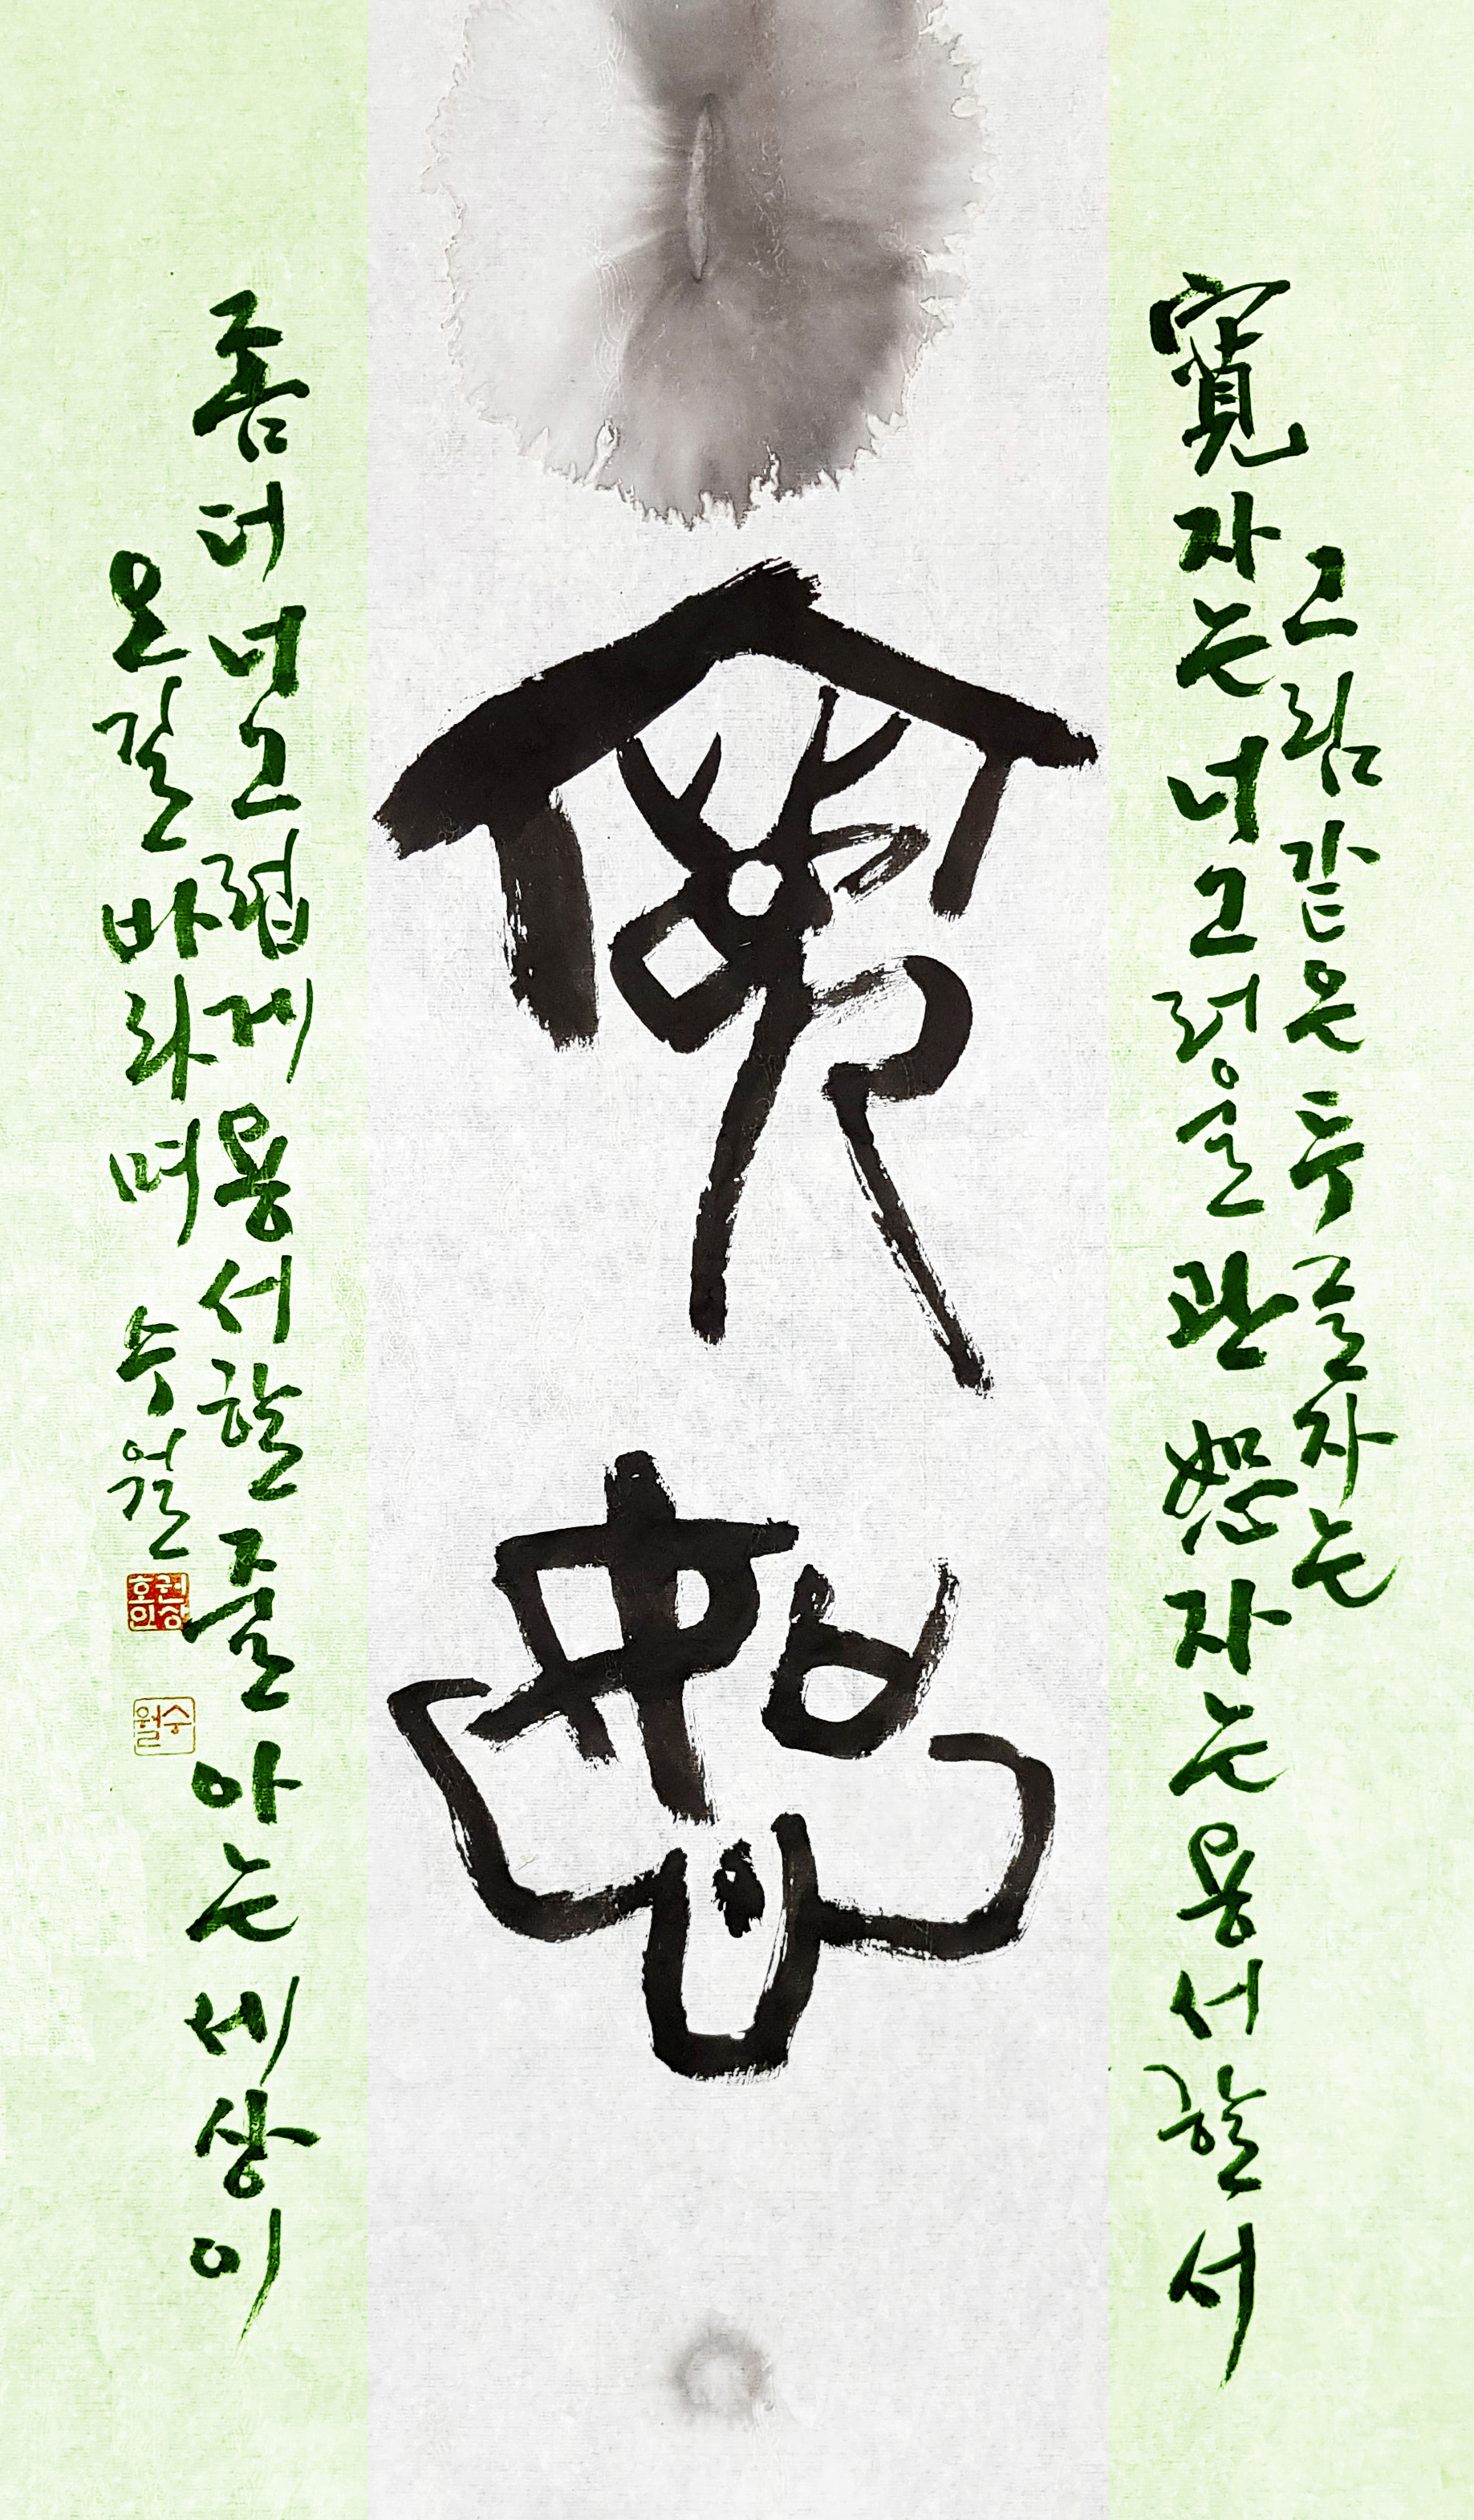 그림 같은 두 글자는
寬 자는 너그러울 관 恕 자는 용서할 서
寬恕
좀 더 너그럽게 용서할 줄 아는 세상이
오길 바라며 수월
권상호인
수월